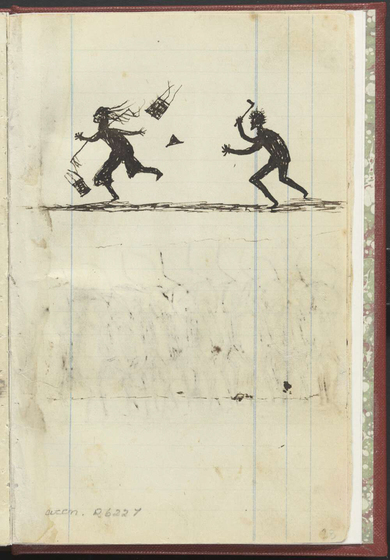 accn. R6227